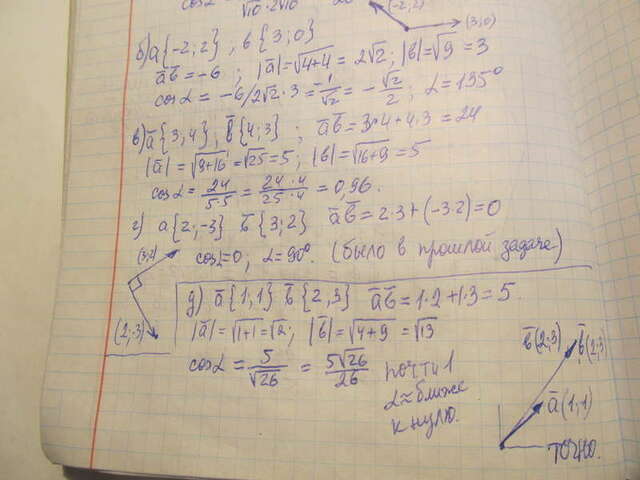 cosα = √10 · 2√10
(-2; 2)
(3; 0)
б) a{-2; 2}, b{3; 0}
ab = -6 ; |a| = √4+4 = 2√2 ; |b| = √9 = 3
cosα = -6/2√2·3 = -1/√2 = -√2/2 ; α = 135°
в) a{3, 4}, b{4; 3} ; ab = 3·4 + 4·3 = 24
|a| = √9+16 = √25 = 5 ; |b| = √16+9 = 5
cosα = 24/5·5 = 24·4/25·4 = 0,96.
г) a{2; -3} b{3; 2} ab = 2·3 + (-3·2) = 0
(3; 2)
cosα = 0, α = 90°. (было в прошлой задаче)
(2; -3)
д) a{1, 1} b{2, 3} ab = 1·2 + 1·3 = 5.
|a| = √1+1 = √2 ; |b| = √4+9 = √13
cosα = 5/√26 = 5√26/26 почти 1
α ≈ ближе
к нулю.
b(2; 3)
b(2; 3)
a(1; 1)
точно.